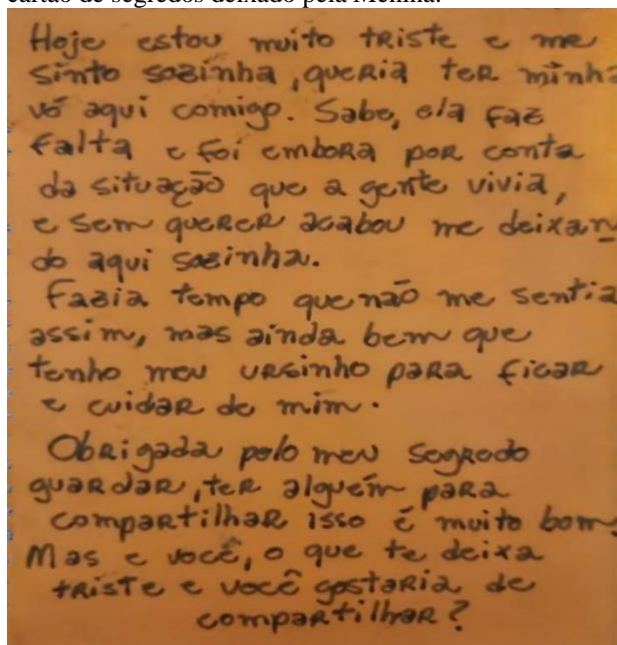 cartão de segredos deixado pela Menina.
Hoje estou muito triste e me
sinto sozinha, queria ter minha
vó aqui comigo. Sabe, ela faz
falta e foi embora por conta
da situação que a gente vivia,
e sem querer acabou me deixan
do aqui sozinha.
Fazia tempo que não me sentia
assim, mas ainda bem que
tenho meu ursinho para ficar
e cuidar de mim.
Obrigada pelo meu segredo
guardar, ter alguém para
compartilhar isso é muito bom.
Mas e você, o que te deixa
triste e você gostaria de
compartilhar?